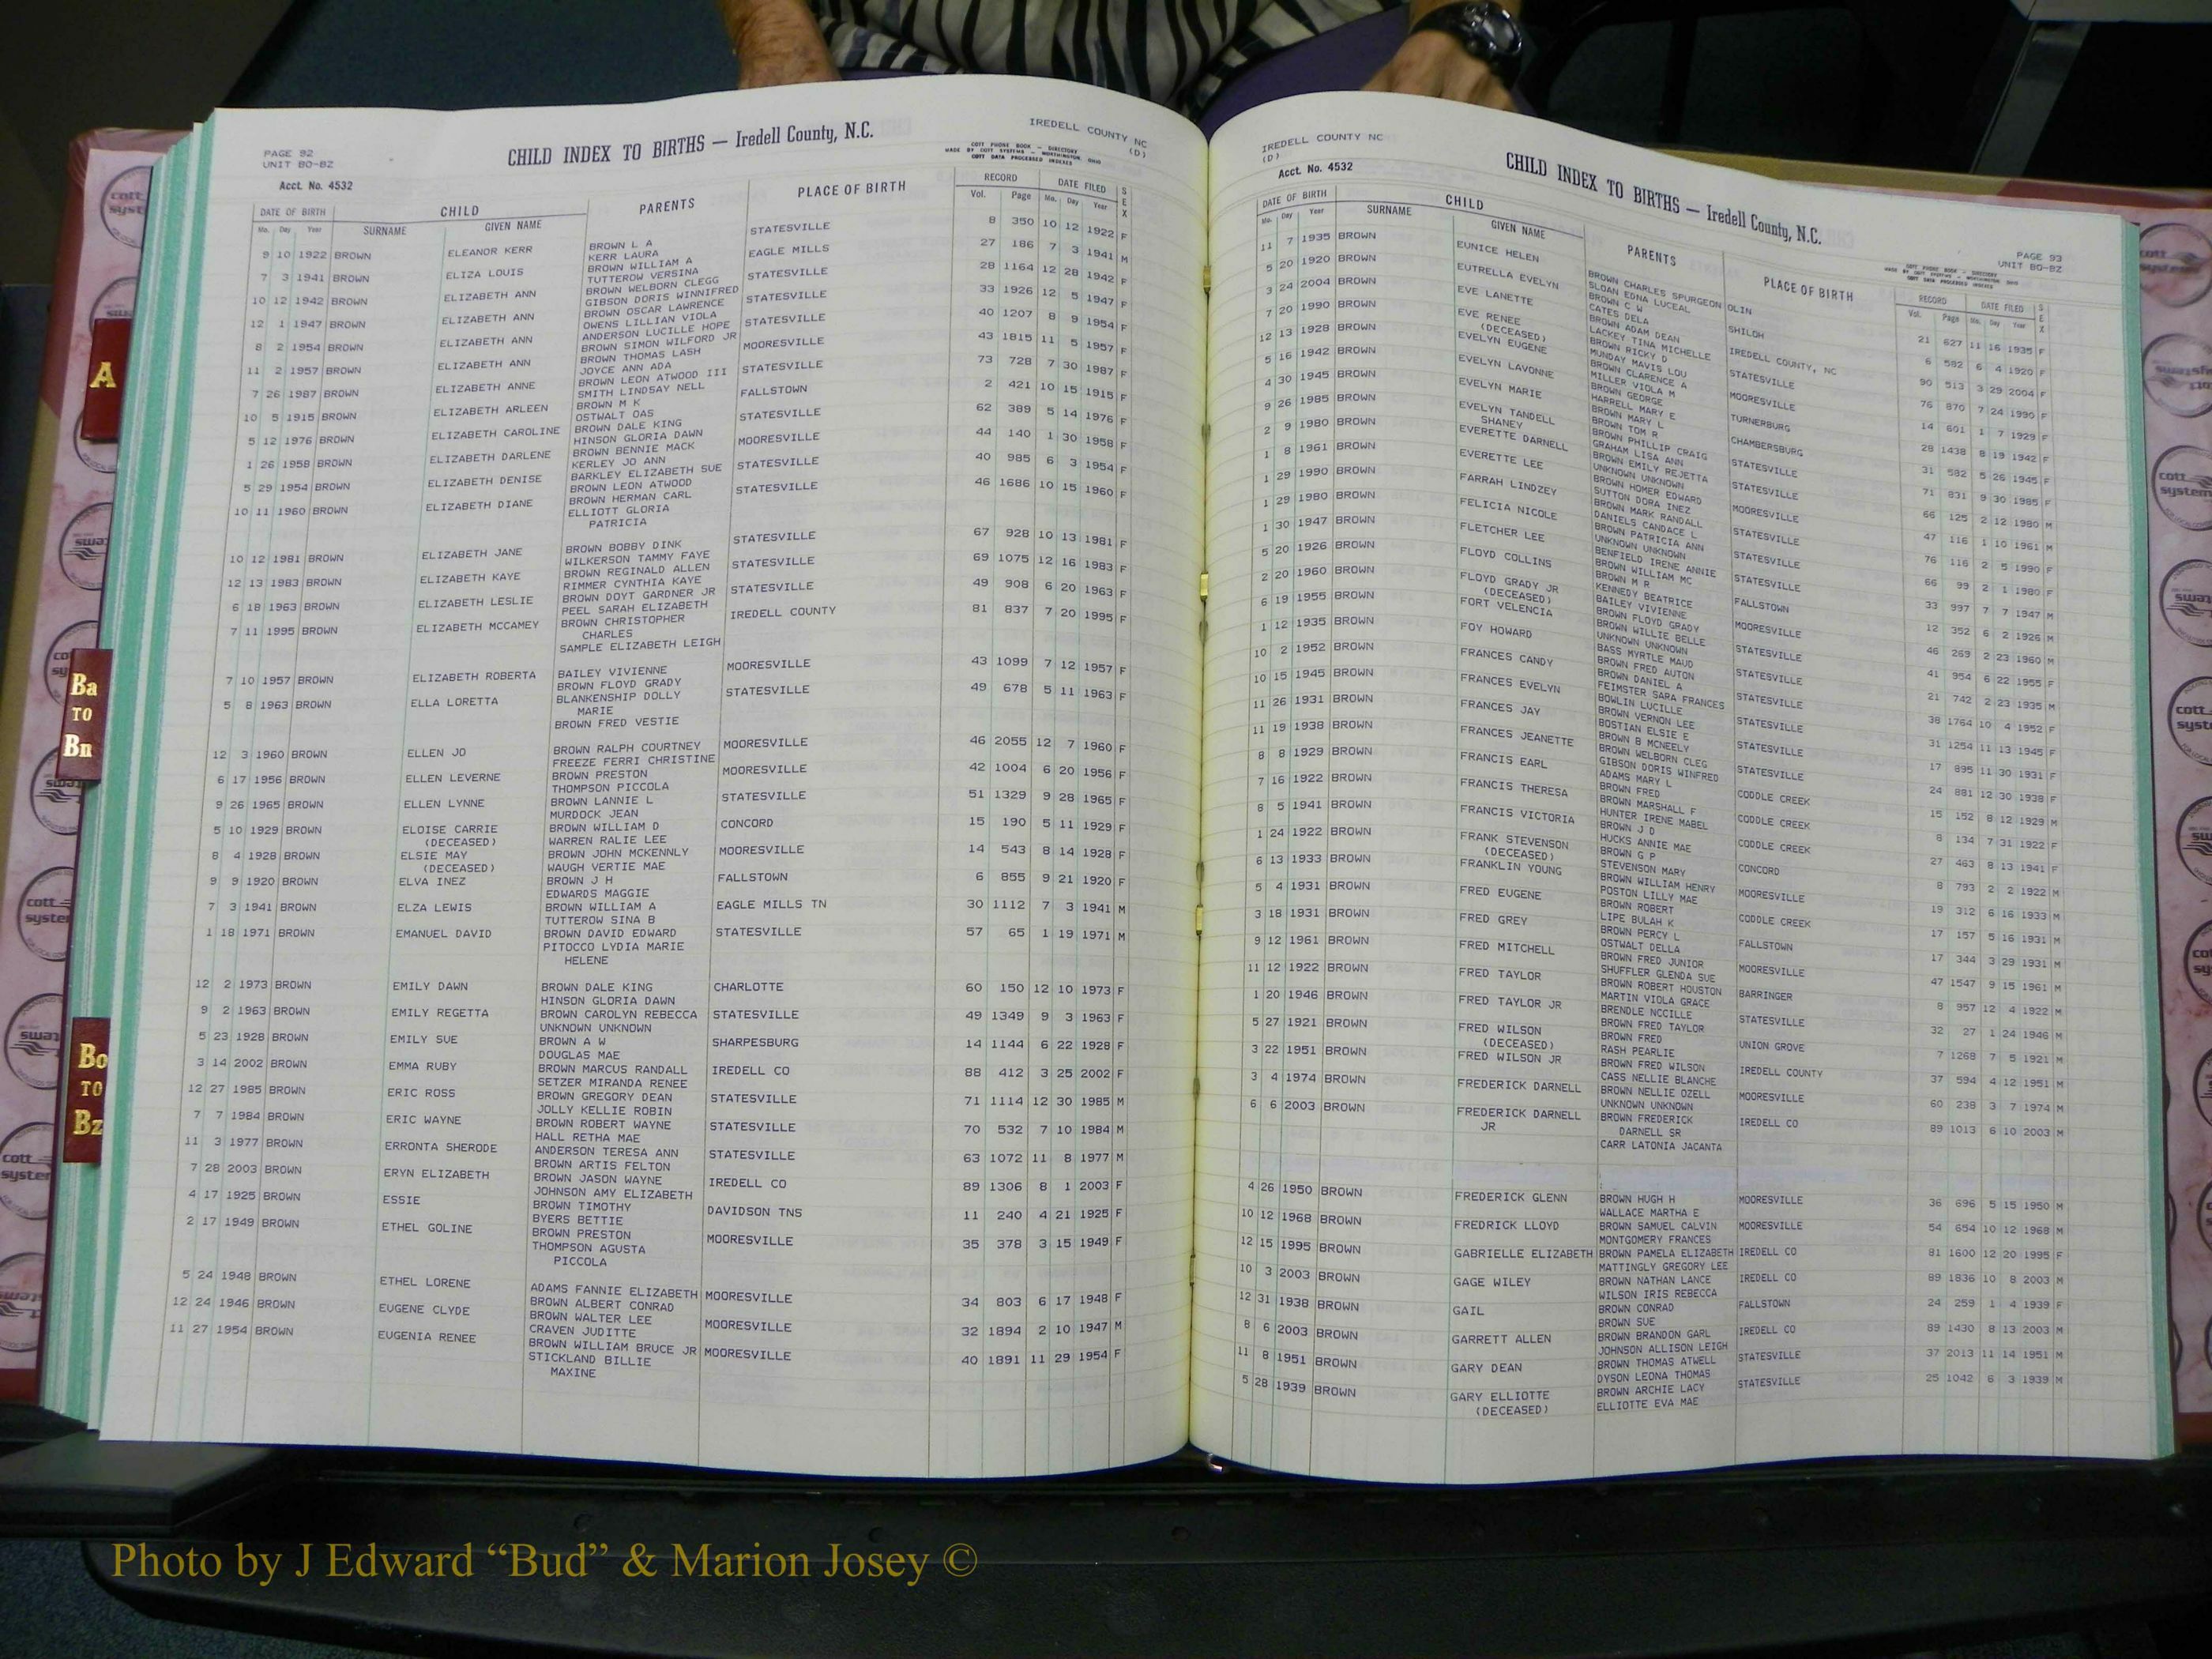 PAGE 92
UNIT BO-BZ
CHILD INDEX TO BIRTHS — Iredell County, N.C.
IREDELL COUNTY NC
(D)
COTT PHONE BOOK — DIRECTORY
MADE BY COTT SYSTEMS — WORTHINGTON, OHIO
COTT DATA PROCESSED INDEXES
Acct. No. 4532
DATE OF BIRTH CHILD PARENTS PLACE OF BIRTH RECORD DATE FILED SEX
Mo. Day Year SURNAME GIVEN NAME Vol. Page Mo. Day Year
9 10 1922 BROWN ELEANOR KERR BROWN L A STATESVILLE 8 350 10 12 1922 F
KERR LAURA
7 3 1941 BROWN ELIZA LOUIS BROWN WILLIAM A EAGLE MILLS 27 186 7 3 1941 M
TUTTEROW VERSINA
10 12 1942 BROWN ELIZABETH ANN BROWN WELBORN CLEGG STATESVILLE 28 1164 12 28 1942 F
GIBSON DORIS WINNIFRED
12 1 1947 BROWN ELIZABETH ANN BROWN OSCAR LAWRENCE STATESVILLE 33 1926 12 5 1947 F
OWENS LILLIAN VIOLA
8 2 1954 BROWN ELIZABETH ANN ANDERSON LUCILLE HOPE STATESVILLE 40 1207 8 9 1954 F
BROWN SIMON WILFORD JR
11 2 1957 BROWN ELIZABETH ANN BROWN THOMAS LASH MOORESVILLE 43 1815 11 5 1957 F
JOYCE ANN ADA
7 26 1987 BROWN ELIZABETH ANNE BROWN LEON ATWOOD III STATESVILLE 73 728 7 30 1987 F
SMITH LINDSAY NELL
10 5 1915 BROWN ELIZABETH ARLEEN BROWN M K FALLSTOWN 2 421 10 15 1915 F
OSTWALT OAS
5 12 1976 BROWN ELIZABETH CAROLINE BROWN DALE KING STATESVILLE 62 389 5 14 1976 F
HINSON GLORIA DAWN
1 26 1958 BROWN ELIZABETH DARLENE BROWN BENNIE MACK MOORESVILLE 44 140 1 30 1958 F
KERLEY JO ANN
5 29 1954 BROWN ELIZABETH DENISE BARKLEY ELIZABETH SUE STATESVILLE 40 985 6 3 1954 F
BROWN LEON ATWOOD
10 11 1960 BROWN ELIZABETH DIANE BROWN HERMAN CARL STATESVILLE 46 1686 10 15 1960 F
ELLIOTT GLORIA
PATRICIA
10 12 1981 BROWN ELIZABETH JANE BROWN BOBBY DINK STATESVILLE 67 928 10 13 1981 F
WILKERSON TAMMY FAYE
12 13 1983 BROWN ELIZABETH KAYE BROWN REGINALD ALLEN STATESVILLE 69 1075 12 16 1983 F
RIMMER CYNTHIA KAYE
6 18 1963 BROWN ELIZABETH LESLIE BROWN DOYT GARDNER JR STATESVILLE 49 908 6 20 1963 F
PEEL SARAH ELIZABETH
7 11 1995 BROWN ELIZABETH MCCAMEY BROWN CHRISTOPHER IREDELL COUNTY 81 837 7 20 1995 F
CHARLES
SAMPLE ELIZABETH LEIGH
7 10 1957 BROWN ELIZABETH ROBERTA BAILEY VIVIENNE MOORESVILLE 43 1099 7 12 1957 F
BROWN FLOYD GRADY
5 8 1963 BROWN ELLA LORETTA BLANKENSHIP DOLLY STATESVILLE 49 678 5 11 1963 F
MARIE
BROWN FRED VESTIE
12 3 1960 BROWN ELLEN JO BROWN RALPH COURTNEY MOORESVILLE 46 2055 12 7 1960 F
FREEZE FERRI CHRISTINE
6 17 1956 BROWN ELLEN LEVERNE BROWN PRESTON MOORESVILLE 42 1004 6 20 1956 F
THOMPSON PICCOLA
9 26 1965 BROWN ELLEN LYNNE BROWN LANNIE L STATESVILLE 51 1329 9 28 1965 F
MURDOCK JEAN
5 10 1929 BROWN ELOISE CARRIE BROWN WILLIAM D CONCORD 15 190 5 11 1929 F
(DECEASED) WARREN RALIE LEE
8 4 1928 BROWN ELSIE MAY BROWN JOHN MCKENNLY MOORESVILLE 14 543 8 14 1928 F
(DECEASED) WAUGH VERTIE MAE
9 9 1920 BROWN ELVA INEZ BROWN J H FALLSTOWN 6 855 9 21 1920 F
EDWARDS MAGGIE
7 3 1941 BROWN ELZA LEWIS BROWN WILLIAM A EAGLE MILLS TN 30 1112 7 3 1941 M
TUTTEROW SINA B
1 18 1971 BROWN EMANUEL DAVID BROWN DAVID EDWARD STATESVILLE 57 65 1 19 1971 M
PITOCCO LYDIA MARIE
HELENE
12 2 1973 BROWN EMILY DAWN BROWN DALE KING CHARLOTTE 60 150 12 10 1973 F
HINSON GLORIA DAWN
9 2 1963 BROWN EMILY REGETTA BROWN CAROLYN REBECCA STATESVILLE 49 1349 9 3 1963 F
UNKNOWN UNKNOWN
5 23 1928 BROWN EMILY SUE BROWN A W SHARPESBURG 14 1144 6 22 1928 F
DOUGLAS MAE
3 14 2002 BROWN EMMA RUBY BROWN MARCUS RANDALL IREDELL CO 88 412 3 25 2002 F
SETZER MIRANDA RENEE
12 27 1985 BROWN ERIC ROSS BROWN GREGORY DEAN STATESVILLE 71 1114 12 30 1985 M
JOLLY KELLIE ROBIN
7 7 1984 BROWN ERIC WAYNE BROWN ROBERT WAYNE STATESVILLE 70 532 7 10 1984 M
HALL RETHA MAE
11 3 1977 BROWN ERRONTA SHERODE ANDERSON TERESA ANN STATESVILLE 63 1072 11 8 1977 M
BROWN ARTIS FELTON
7 28 2003 BROWN ERYN ELIZABETH BROWN JASON WAYNE IREDELL CO 89 1306 8 1 2003 F
JOHNSON AMY ELIZABETH
4 17 1925 BROWN ESSIE BROWN TIMOTHY DAVIDSON TNS 11 240 4 21 1925 F
BYERS BETTIE
2 17 1949 BROWN ETHEL GOLINE BROWN PRESTON MOORESVILLE 35 378 3 15 1949 F
THOMPSON AGUSTA
PICCOLA
5 24 1948 BROWN ETHEL LORENE ADAMS FANNIE ELIZABETH MOORESVILLE 34 803 6 17 1948 F
BROWN ALBERT CONRAD
12 24 1946 BROWN EUGENE CLYDE BROWN WALTER LEE MOORESVILLE 32 1894 2 10 1947 M
CRAVEN JUDITTE
11 27 1954 BROWN EUGENIA RENEE BROWN WILLIAM BRUCE JR MOORESVILLE 40 1891 11 29 1954 F
STICKLAND BILLIE
MAXINE
IREDELL COUNTY NC
(D)
Acct. No. 4532
CHILD INDEX TO BIRTHS — Iredell County, N.C.
PAGE 93
UNIT BO-BZ
COTT PHONE BOOK — DIRECTORY
MADE BY COTT SYSTEMS — WORTHINGTON, OHIO
COTT DATA PROCESSED INDEXES
DATE OF BIRTH CHILD PARENTS PLACE OF BIRTH RECORD DATE FILED SEX
Mo. Day Year SURNAME GIVEN NAME Vol. Page Mo. Day Year
11 7 1935 BROWN
5 20 1920 BROWN
3 24 2004 BROWN
7 20 1990 BROWN
12 13 1928 BROWN
5 16 1942 BROWN
4 30 1945 BROWN
9 26 1985 BROWN
2 9 1980 BROWN
1 8 1961 BROWN
1 29 1990 BROWN
1 29 1980 BROWN
1 30 1947 BROWN
5 20 1926 BROWN
2 20 1960 BROWN
6 19 1955 BROWN
1 12 1935 BROWN
10 2 1952 BROWN
10 15 1945 BROWN
11 26 1931 BROWN
11 19 1938 BROWN
8 8 1929 BROWN
7 16 1922 BROWN
8 5 1941 BROWN
1 24 1922 BROWN
6 13 1933 BROWN
5 4 1931 BROWN
3 18 1931 BROWN
9 12 1961 BROWN
11 12 1922 BROWN
1 20 1946 BROWN
5 27 1921 BROWN
3 22 1951 BROWN
3 4 1974 BROWN
6 6 2003 BROWN
4 26 1950 BROWN
10 12 1968 BROWN
12 15 1995 BROWN
10 3 2003 BROWN
12 31 1938 BROWN
8 6 2003 BROWN
11 8 1951 BROWN
5 28 1939 BROWN
EUNICE HELEN
EUTRELLA EVELYN
EVE LANETTE
EVE RENEE
(DECEASED)
EVELYN EUGENE
EVELYN LAVONNE
EVELYN MARIE
EVELYN TANDELL
SHANEY
EVERETTE DARNELL
EVERETTE LEE
FARRAH LINDZEY
FELICIA NICOLE
FLETCHER LEE
FLOYD COLLINS
FLOYD GRADY JR
(DECEASED)
FORT VELENCIA
FOY HOWARD
FRANCES CANDY
FRANCES EVELYN
FRANCES JAY
FRANCES JEANETTE
FRANCIS EARL
FRANCIS THERESA
FRANCIS VICTORIA
FRANK STEVENSON
(DECEASED)
FRANKLIN YOUNG
FRED EUGENE
FRED GREY
FRED MITCHELL
FRED TAYLOR
FRED TAYLOR JR
FRED WILSON
(DECEASED)
FRED WILSON JR
FREDERICK DARNELL
FREDERICK DARNELL
JR
FREDERICK GLENN
FREDRICK LLOYD
GABRIELLE ELIZABETH
GAGE WILEY
GAIL
GARRETT ALLEN
GARY DEAN
GARY ELLIOTTE
(DECEASED)
BROWN CHARLES SPURGEON
SLOAN EDNA LUCEAL
BROWN C W
CATES DELA
BROWN ADAM DEAN
LACKEY TINA MICHELLE
BROWN RICKY D
MUNDAY MAVIS LOU
BROWN CLARENCE A
MILLER VIOLA M
BROWN GEORGE
HARRELL MARY E
BROWN MARY L
BROWN TOM R
BROWN PHILLIP CRAIG
GRAHAM LISA ANN
BROWN EMILY REJETTA
UNKNOWN UNKNOWN
BROWN HOMER EDWARD
SUTTON DORA INEZ
BROWN MARK RANDALL
DANIELS CANDACE L
BROWN PATRICIA ANN
UNKNOWN UNKNOWN
BENFIELD IRENE ANNIE
BROWN WILLIAM MC
BROWN M R
KENNEDY BEATRICE
BAILEY VIVIENNE
BROWN FLOYD GRADY
BROWN WILLIE BELLE
UNKNOWN UNKNOWN
BASS MYRTLE MAUD
BROWN FRED AUTON
BROWN DANIEL A
FEIMSTER SARA FRANCES
BOWLIN LUCILLE
BROWN VERNON LEE
BOSTIAN ELSIE E
BROWN B MCNEELY
BROWN WELBORN CLEG
GIBSON DORIS WINFRED
ADAMS MARY L
BROWN FRED
BROWN MARSHALL F
HUNTER IRENE MABEL
BROWN J D
HUCKS ANNIE MAE
BROWN G P
STEVENSON MARY
BROWN WILLIAM HENRY
POSTON LILLY MAE
BROWN ROBERT
LIPE BULAH K
BROWN PERCY L
OSTWALT DELLA
BROWN FRED JUNIOR
SHUFFLER GLENDA SUE
BROWN ROBERT HOUSTON
MARTIN VIOLA GRACE
BRENDLE NCCILLE
BROWN FRED TAYLOR
BROWN FRED
RASH PEARLIE
BROWN FRED WILSON
CASS NELLIE BLANCHE
BROWN NELLIE OZELL
UNKNOWN UNKNOWN
BROWN FREDERICK
DARNELL SR
CARR LATONIA JACANTA
BROWN HUGH H
WALLACE MARTHA E
BROWN SAMUEL CALVIN
MONTGOMERY FRANCES
BROWN PAMELA ELIZABETH
MATTINGLY GREGORY LEE
BROWN NATHAN LANCE
WILSON IRIS REBECCA
BROWN CONRAD
BROWN SUE
BROWN BRANDON GARL
JOHNSON ALLISON LEIGH
BROWN THOMAS ATWELL
DYSON LEONA THOMAS
BROWN ARCHIE LACY
ELLIOTTE EVA MAE
OLIN
SHILOH
IREDELL COUNTY, NC
STATESVILLE
MOORESVILLE
TURNERBURG
CHAMBERSBURG
STATESVILLE
STATESVILLE
MOORESVILLE
STATESVILLE
STATESVILLE
FALLSTOWN
MOORESVILLE
STATESVILLE
STATESVILLE
STATESVILLE
STATESVILLE
STATESVILLE
CODDLE CREEK
CODDLE CREEK
CODDLE CREEK
CONCORD
MOORESVILLE
CODDLE CREEK
FALLSTOWN
MOORESVILLE
BARRINGER
STATESVILLE
UNION GROVE
IREDELL COUNTY
MOORESVILLE
IREDELL CO
MOORESVILLE
MOORESVILLE
IREDELL CO
IREDELL CO
FALLSTOWN
IREDELL CO
STATESVILLE
STATESVILLE
21 627 11 16 1935 F
6 582 6 4 1920 F
90 513 3 29 2004 F
76 870 7 24 1990 F
14 601 1 7 1929 F
28 1438 8 19 1942 F
31 582 5 26 1945 F
71 831 9 30 1985 F
66 125 2 12 1980 M
47 116 1 10 1961 M
76 116 2 5 1990 F
66 99 2 1 1980 F
33 997 7 7 1947 M
12 352 6 2 1926 M
46 269 2 23 1960 M
41 954 6 22 1955 F
21 742 2 23 1935 M
38 1764 10 4 1952 F
31 1254 11 13 1945 F
17 895 11 30 1931 F
24 881 12 30 1938 F
15 152 8 12 1929 M
8 134 7 31 1922 F
27 463 8 13 1941 F
8 793 2 2 1922 M
19 312 6 16 1933 M
17 157 5 16 1931 M
17 344 3 29 1931 M
47 1547 9 15 1961 M
8 957 12 4 1922 M
32 27 1 24 1946 M
7 1268 7 5 1921 M
37 594 4 12 1951 M
60 238 3 7 1974 M
89 1013 6 10 2003 M
36 696 5 15 1950 M
54 654 10 12 1968 M
81 1600 12 20 1995 F
89 1836 10 8 2003 M
24 259 1 4 1939 F
89 1430 8 13 2003 M
37 2013 11 14 1951 M
25 1042 6 3 1939 M
A
Ba
TO
Bn
Bo
TO
Bz
Photo by J Edward “Bud” & Marion Josey ©